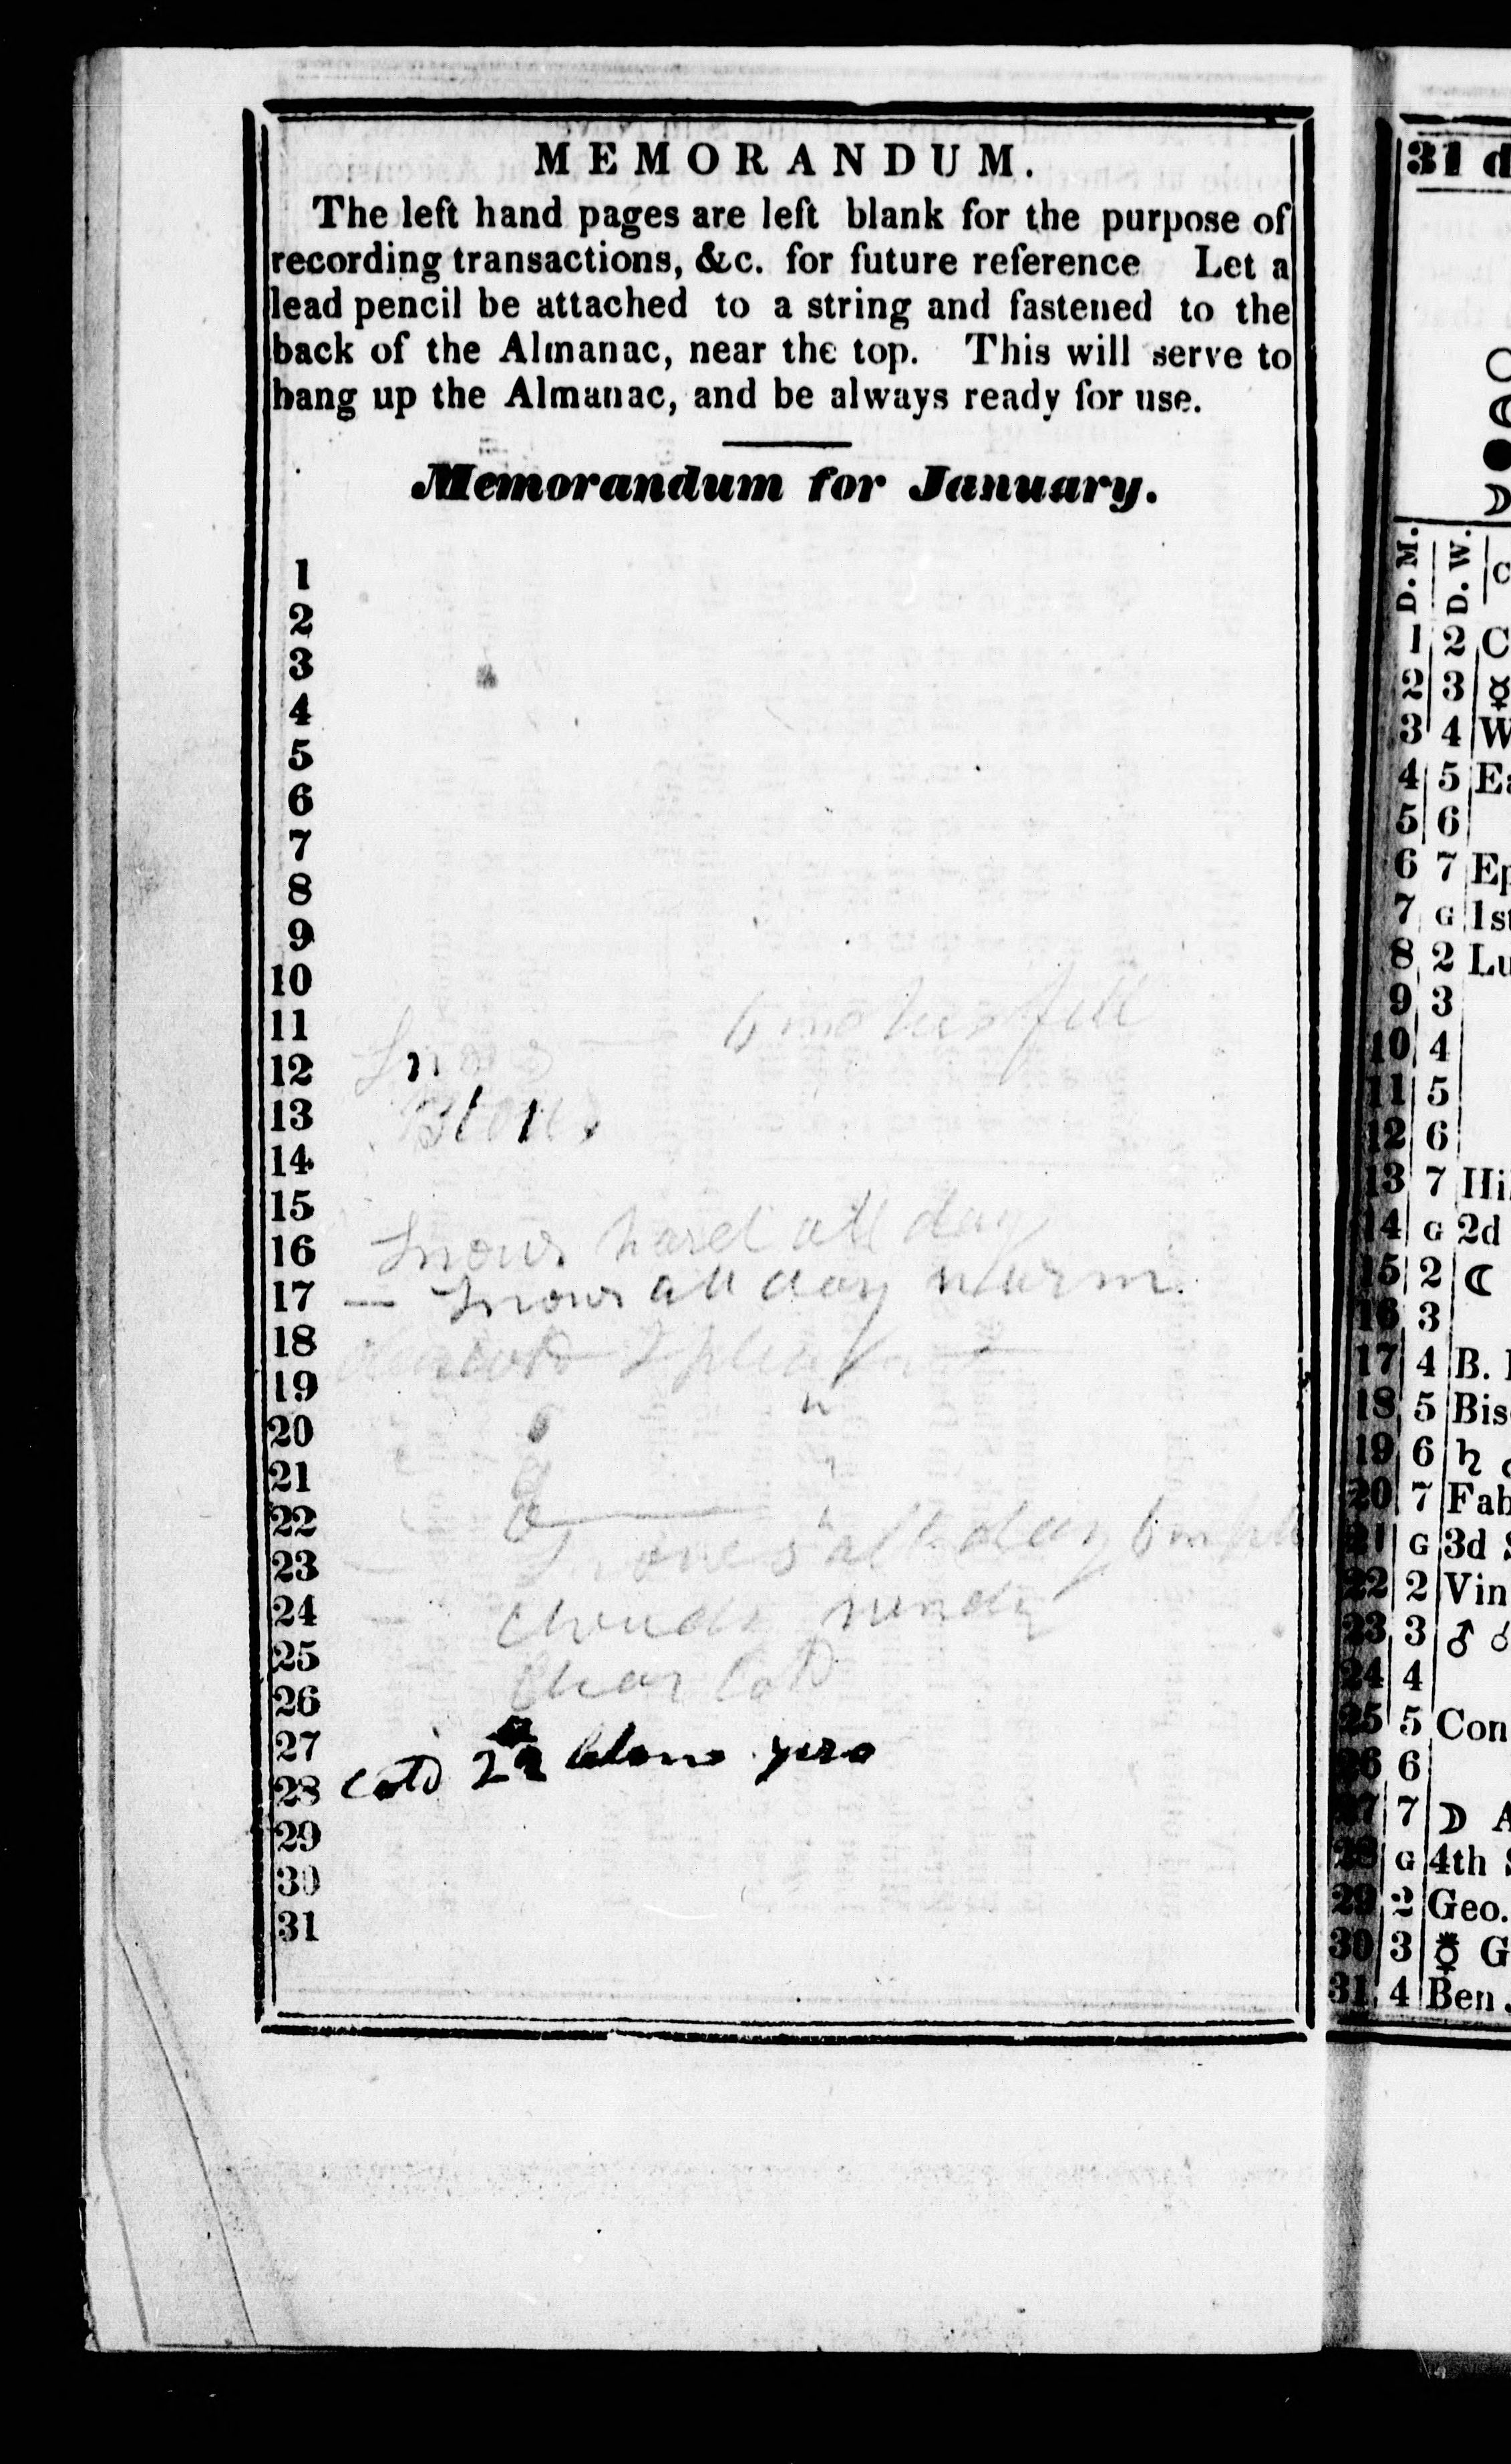 MEMORANDUM.
The left hand pages are left blank for the purpose of
recording transactions, &c. for future reference Let a
lead pencil be attached to a string and fastened to the
back of the Almanac, near the top. This will serve to
hang up the Almanac, and be always ready for use.
Memorandum for January.
1
2
3
4
5
6
7
8
9
10
11
12
13
14
15
16 Snows hard all day
17 — Snows all day warm.
18
19
20
21
22
23 Snows all day
24 windy
25
26 Clear Cold
27
28 Cold 22 below zero
29
30
31
31 d
D. M. D. W. C
1 2 C
2 3 ☿
3 4 W
4 5 Ea
5 6
6 7 Ep
7 G 1st
8 2 Lu
9 3
10 4
11 5
12 6
13 7 Hi
14 G 2d
15 2 ☾
16 3
17 4 B.
18 5 Bis
19 6 ♄
20 7 Fab
21 G 3d S
22 2 Vin
23 3 ♂ ☌
24 4
25 5 Con
26 6
27 7 ☽ A
28 G 4th S
29 2 Geo.
30 3 ☿ G
31 4 Ben